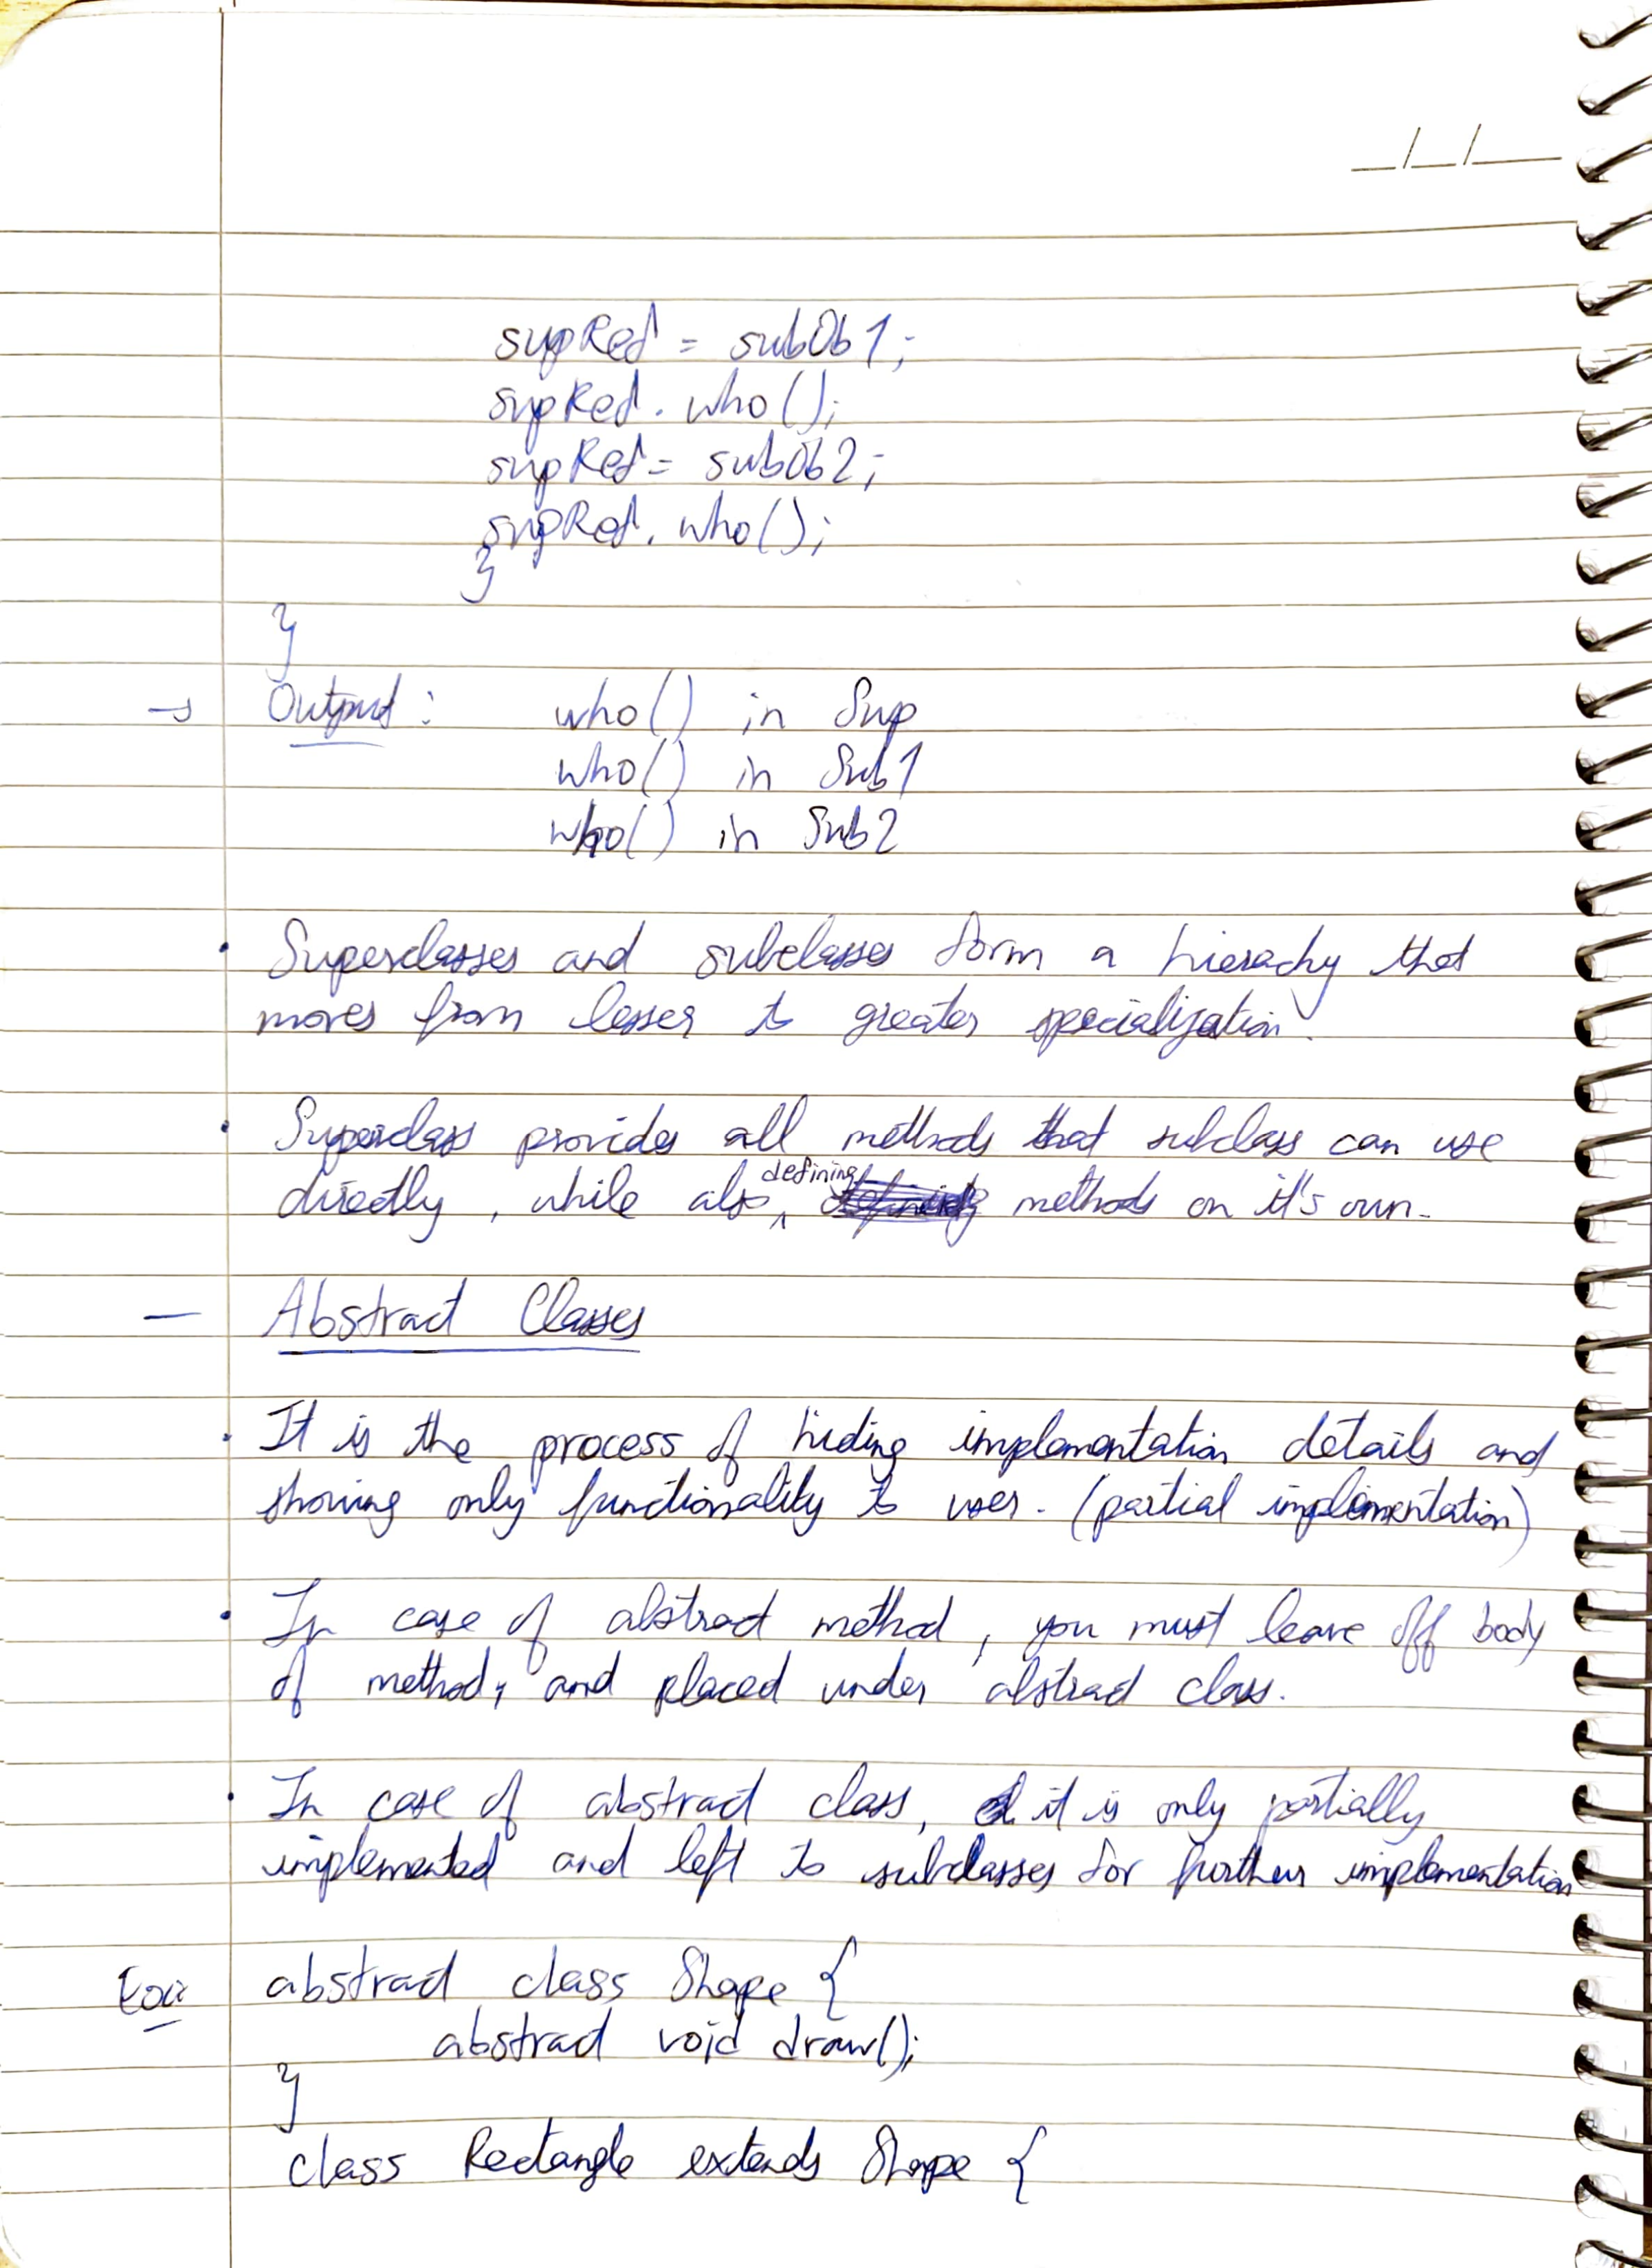 __/__/____
supRef = subOb1;
supRef. who();
supRef = subOb2;
supRef. who();
}
}
→ Output: who() in Sup
who() in Sub1
who() in Sub2
• Superclasses and subclasses form a hierachy that
moves from lesser to greater specialization.
• Superclass provides all methods that subclass can use
directly, while also defining methods on it's own.
— Abstract Classes
• It is the process of hiding implementation details and
showing only functionality to user. (partial implementation)
• In case of abstract method, you must leave off body
of method, and placed under abstract class.
• In case of abstract class, it is only partially
implemented and left to subclasses for further implementation
Ex: abstract class Shape {
abstract void draw();
}
class Rectangle extends Shape {